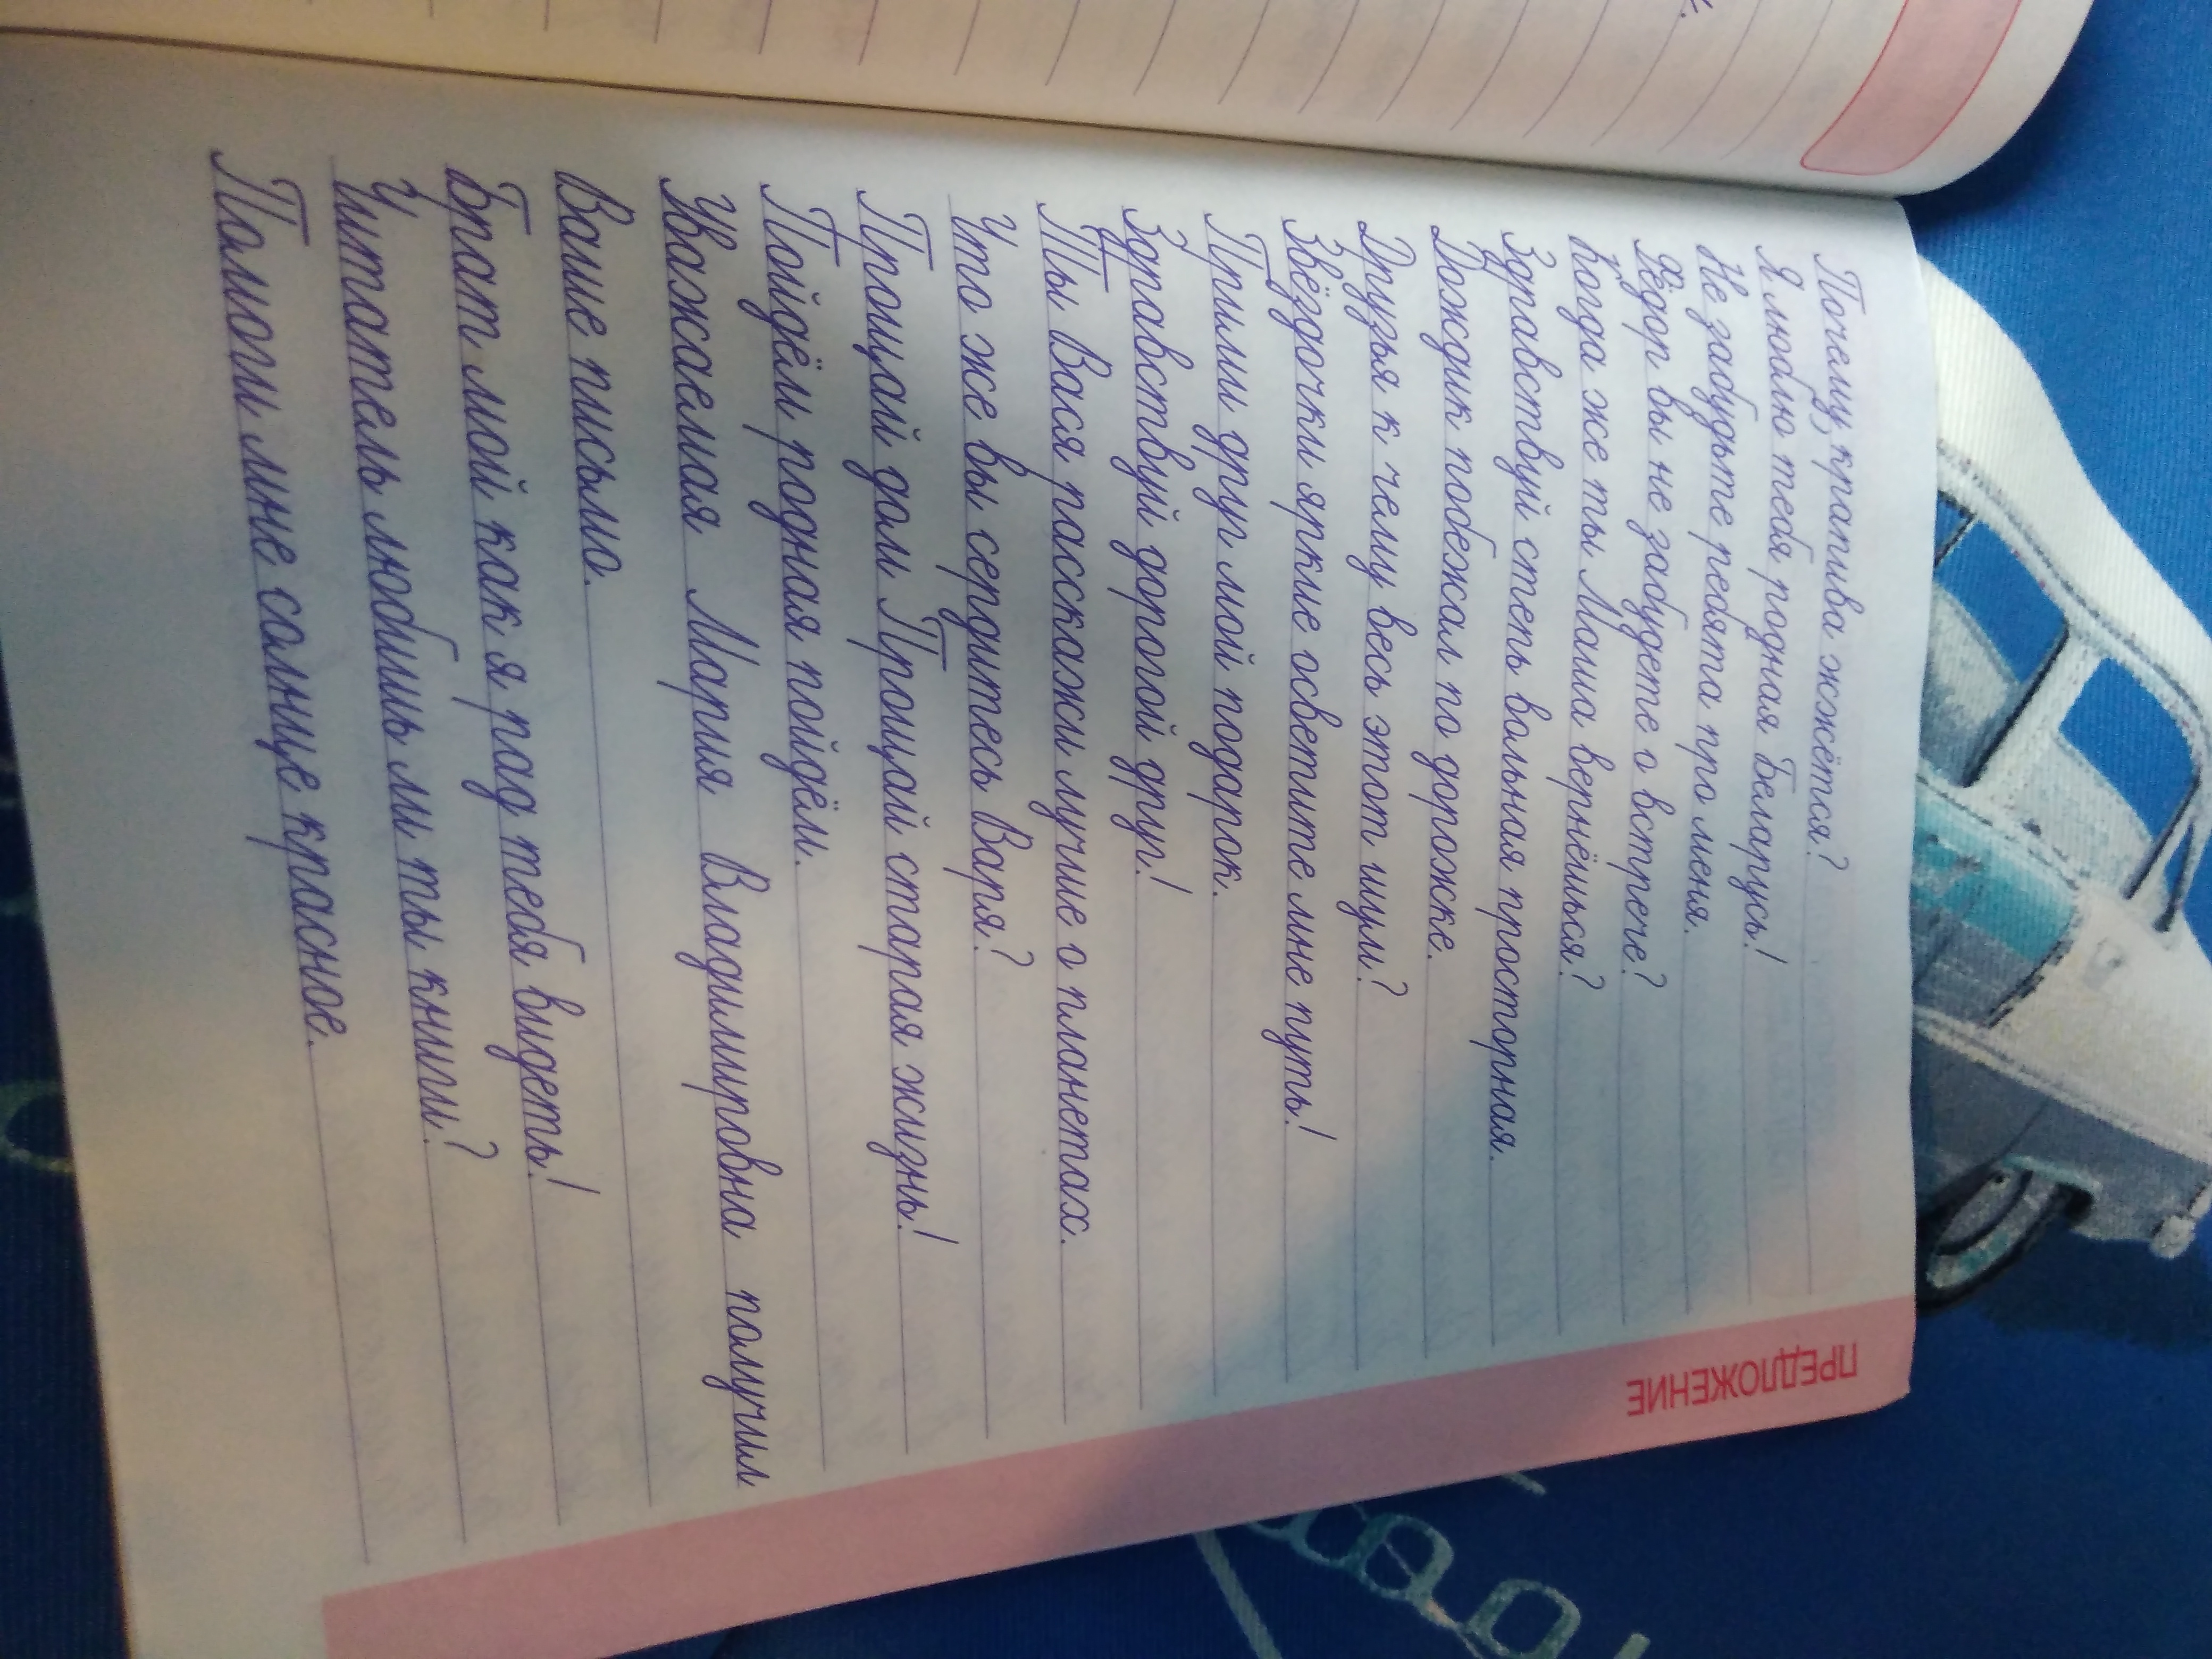 ПРЕДЛОЖЕНИЕ
Почему крапива жжётся?
Я люблю тебя родная Беларусь!
Не забудьте ребята про меня.
Фёдор вы не забудете о встрече?
Когда же ты Маша вернёшься?
Здравствуй степь вольная просторная.
Дождик побежал по дорожке.
Друзья к чему весь этот шум?
Звёздочки яркие осветите мне путь!
Прими друг мой подарок.
Здравствуй дорогой друг!
Ты Вася расскажи лучше о планетах.
Что же вы сердитесь Варя?
Прощай дом Прощай старая жизнь!
Пойдём родная пойдём.
Уважаемая Мария Владимировна получил
Ваше письмо.
Брат мой как я рад тебя видеть!
Читатель любишь ли ты книги?
Помоги мне солнце красное.